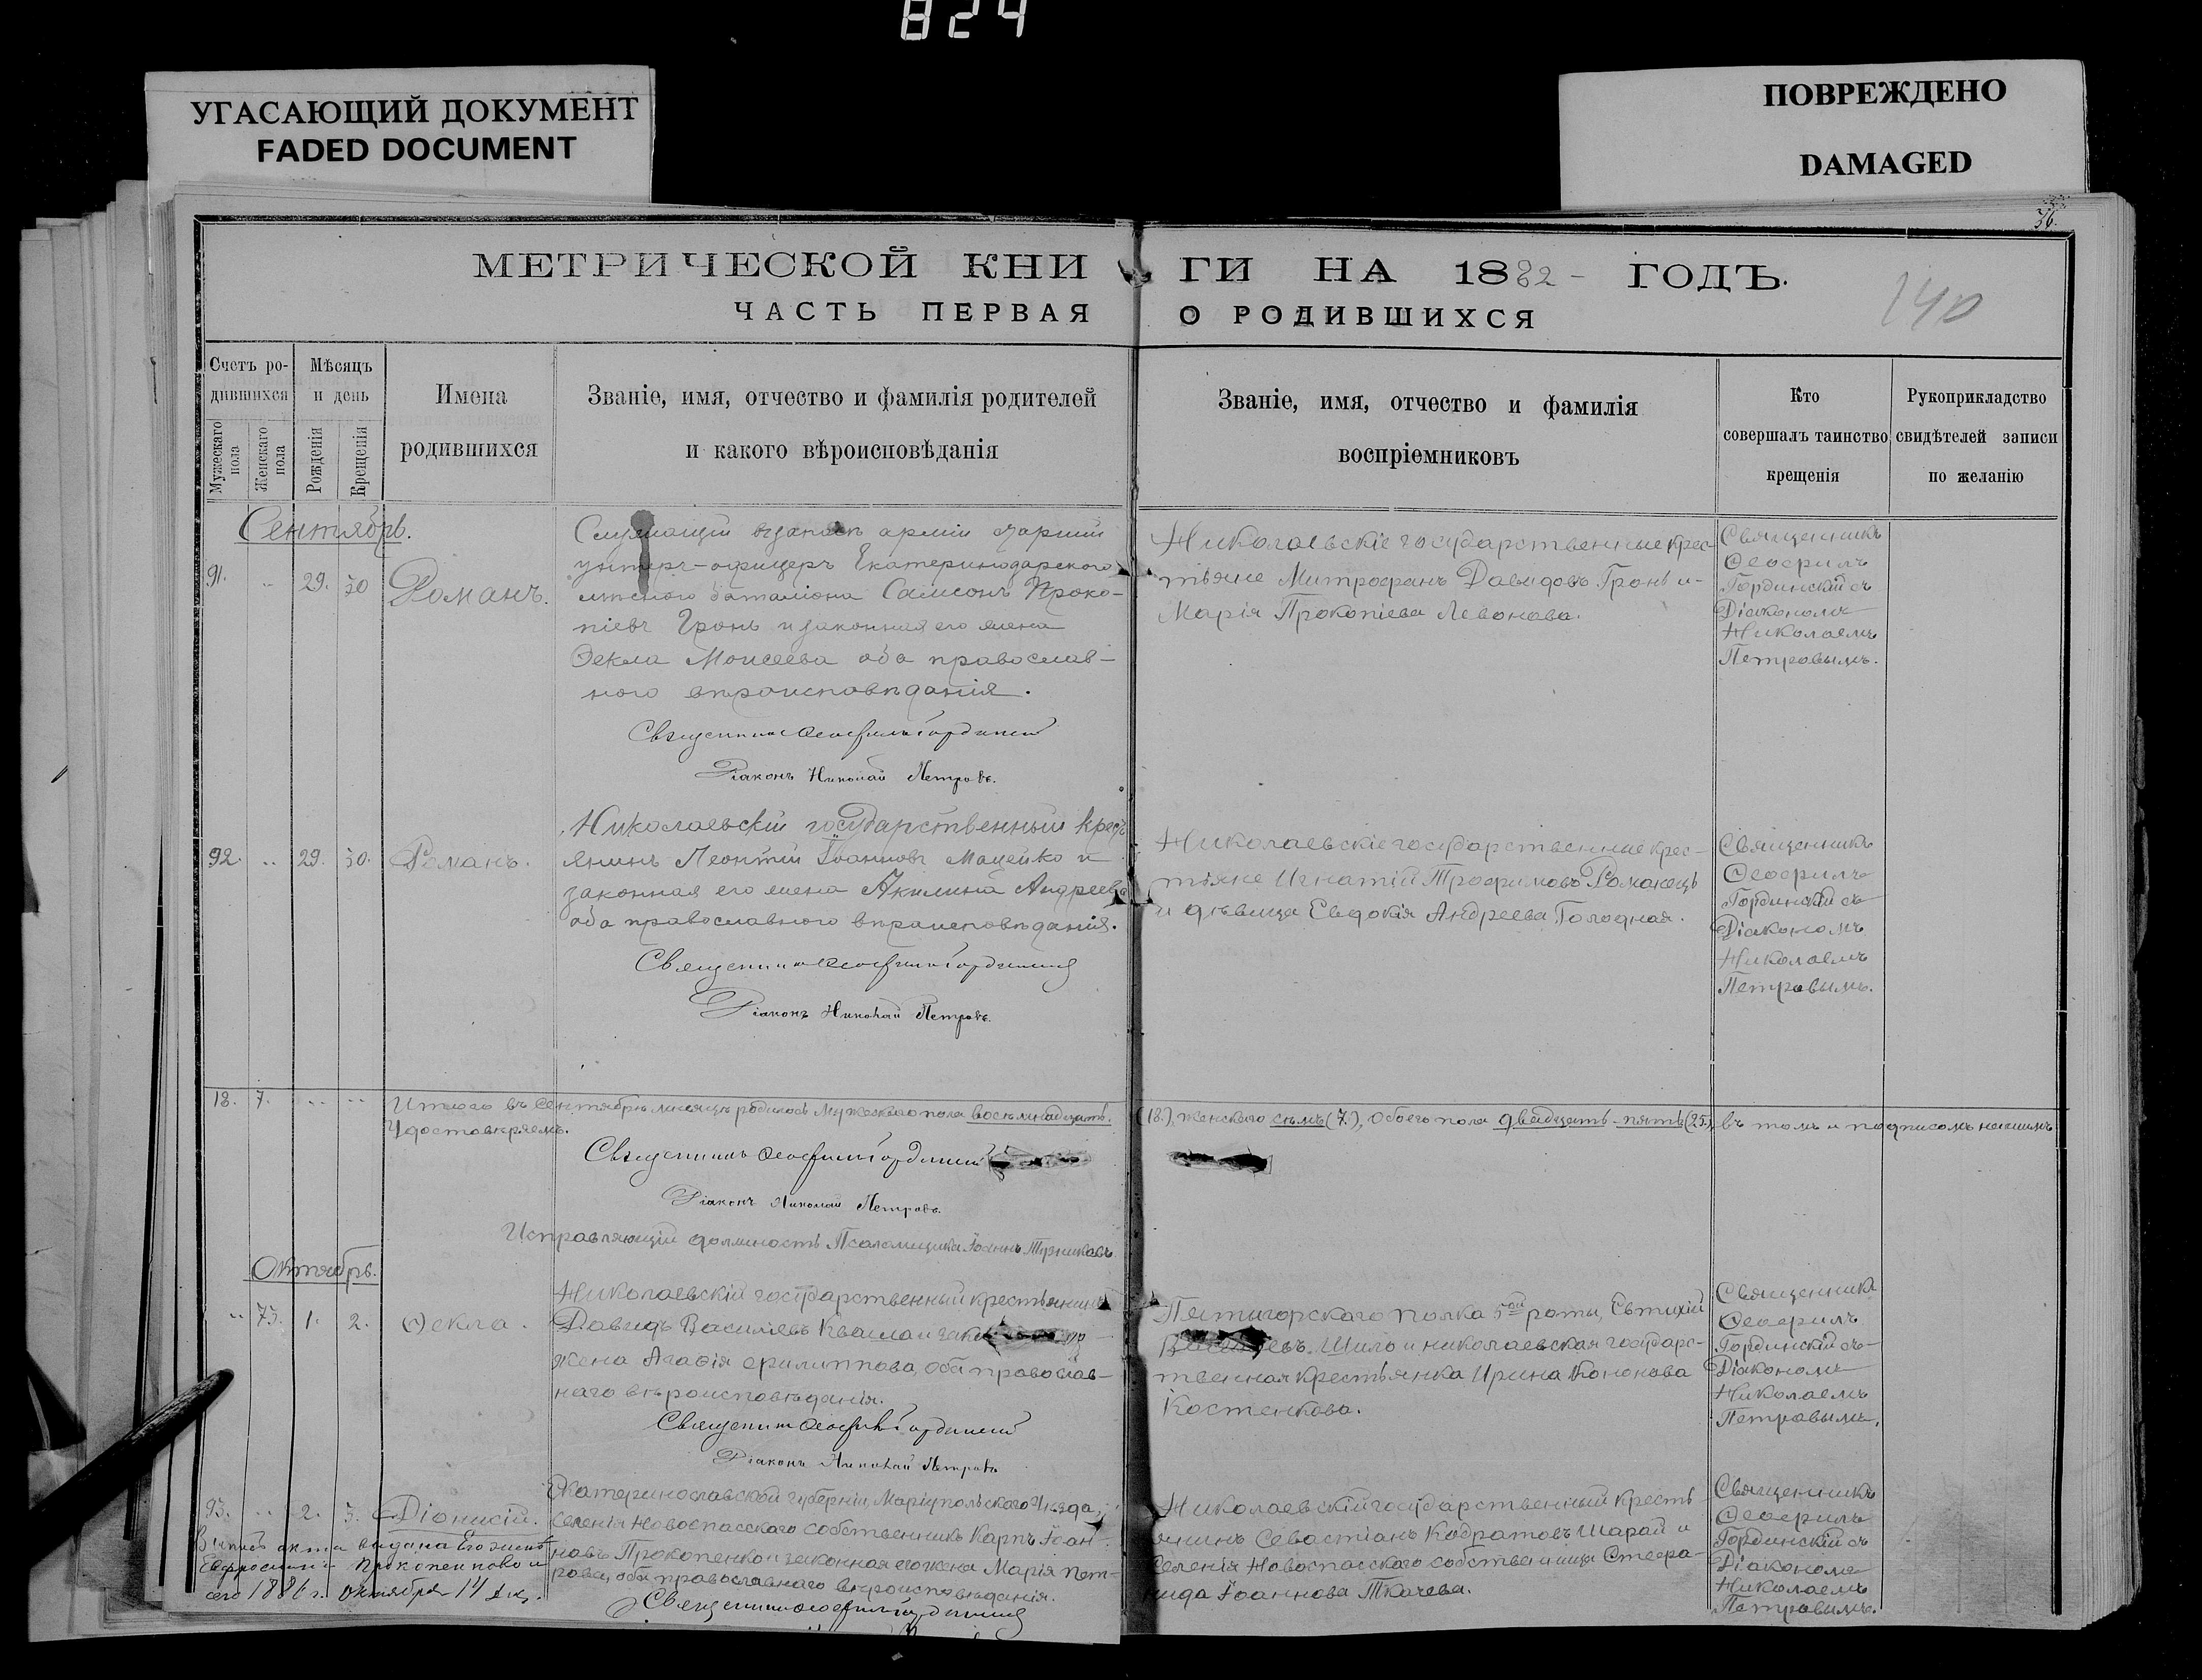 824
УГАСАЮЩИЙ ДОКУМЕНТ
FADED DOCUMENT
ПОВРЕЖДЕНО
DAMAGED
36.
МЕТРИЧЕСКОЙ КНИГИ НА 1882 ГОДЪ.
ЧАСТЬ ПЕРВАЯ О РОДИВШИХСЯ
140
Счетъ родившихся
Мужескаго пола
Женскаго пола
Мѣсяцъ и день
Рожденія
Крещенія
Имена родившихся
Званіе, имя, отчество и фамилія родителей
и какого вѣроисповѣданія
Званіе, имя, отчество и фамилія
воспріемниковъ
Кто
совершалъ таинство
крещенія
Рукоприкладство
свидѣтелей записи
по желанію
Сентябрь.
91. .. 29. 30 Романъ.
Служащій арміи
унтеръ-офицеръ Екатеринодарскаго
мѣстнаго баталіона Самсонъ Проко-
піевъ Гронь и законная его жена
Ѳекла Моисеева оба православ-
наго вѣроисповѣданія.
Священникъ Ѳеофилъ Гординскій
Діаконъ Николай Петровъ.
Николаевскіе государственные крес-
тьяне Митрофанъ Давидовъ Гронь и
Марія Прокопіева Левонова.
Священникъ
Ѳеофилъ
Гординскій съ
Діакономъ
Николаемъ
Петровымъ.
92. .. 29. 30. Романъ.
Николаевскій государственный крестъ
янинъ Леонтій Іоанновъ Мацейко и
законная его жена Акилина Андреева
оба православнаго вѣроисповѣданія.
Священникъ Ѳеофилъ Гординскій
Діаконъ Николай Петровъ.
Николаевскіе государственные крес-
тьяне Игнатій Трофимовъ Романецъ
и дѣвица Евдокія Андреева Голодная.
Священникъ
Ѳеофилъ
Гординскій съ
Діакономъ
Николаемъ
Петровымъ.
18. 7. .. .. Итого въ Сентябрѣ мѣсяцѣ родилось мужескаго пола восемнадцать (18.), женскаго семь (7.), обоего пола двадцать-пять (25), въ томъ и подписомъ нашимъ
Удостовѣряемъ.
Священникъ Ѳеофилъ Гординскій
Діаконъ Николай Петровъ.
Исправляющій должность Псаломщика Іоаннъ
Октябрь.
.. 73. 1. 2. Ѳекла.
Николаевскій государственный крестьянинъ
Давидъ Васильевъ Кваша и
жена Агаѳія Филиппова, оба православ-
наго вѣроисповѣданія.
Священникъ Ѳеофилъ Гординскій
Діаконъ Николай Петровъ
Пятигорскаго полка 5ой роты, Евтихій
Шило и николаевская государс-
твенная крестьянка Ирина Кононова
Костенкова.
Священникъ
Ѳеофилъ
Гординскій съ
Діакономъ
Николаемъ
Петровымъ.
93. .. 2. 3. Діонисій.
Екатеринославской губерніи, Маріупольскаго Уѣзда,
селенія Новоспасскаго собственникъ Карпъ Іоан-
новъ Прокопенко и законная его жена Марія Пет-
рова, оба православнаго вѣроисповѣданія.
Священникъ Ѳеофилъ Гординскій
Выпись акта выдана Его
Прокопенковой
1886 г. октября 14 д.
Николаевскій государственный кресть-
янинъ Севастіанъ Кодратовъ Шарай и
селенія Новоспасскаго собственница Стефа-
нида Іоаннова Ткачева.
Священникъ
Ѳеофилъ
Гординскій съ
Діакономъ
Николаемъ
Петровымъ.